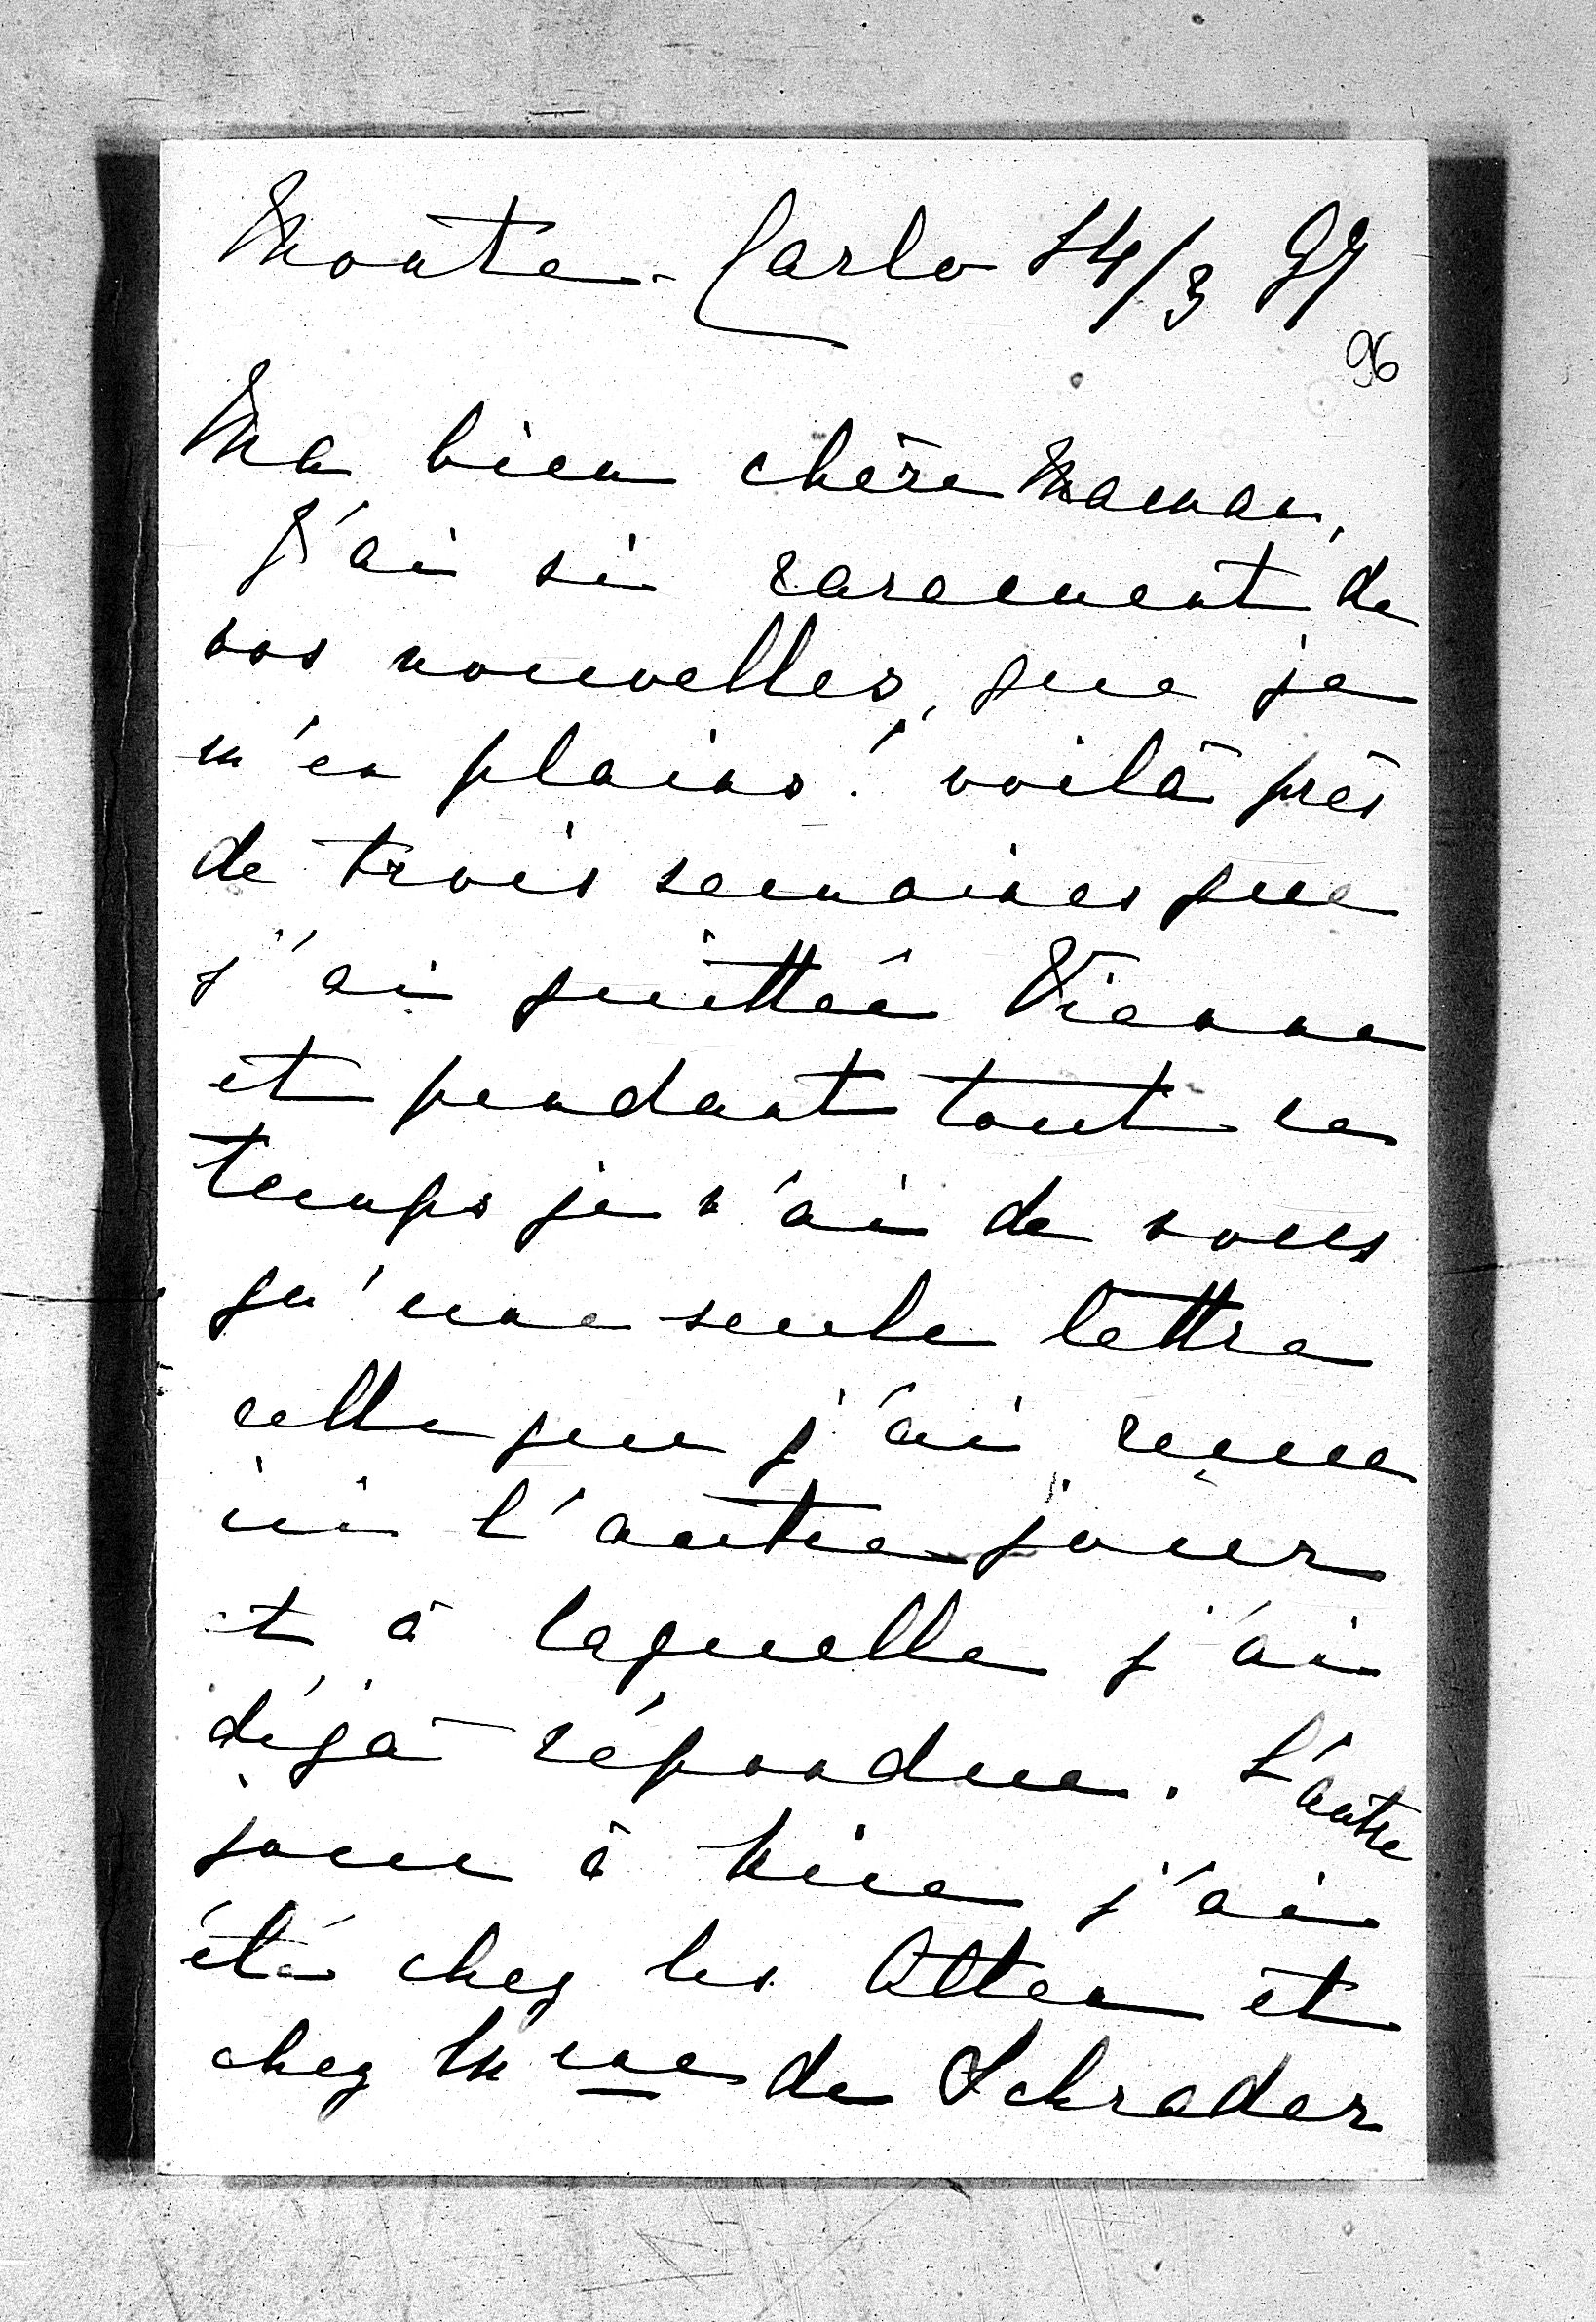 Monte-Carlo 14/3 97
96
Ma bien chère Maman,
J'ai si rarement de
vos nouvelles, que je
m'en plains! voilà près
de trois semaines que
j'ai quittée Vienne
et pendant tout ce
temps je n'ai de vous
qu'une seule lettre
celle que j'ai reçue
ici l'autre jour
et à laquelle j'ai
déjà répondue. L'autre
jour à Nice j'ai
été chez les Otten et
chez Mme de Schrader